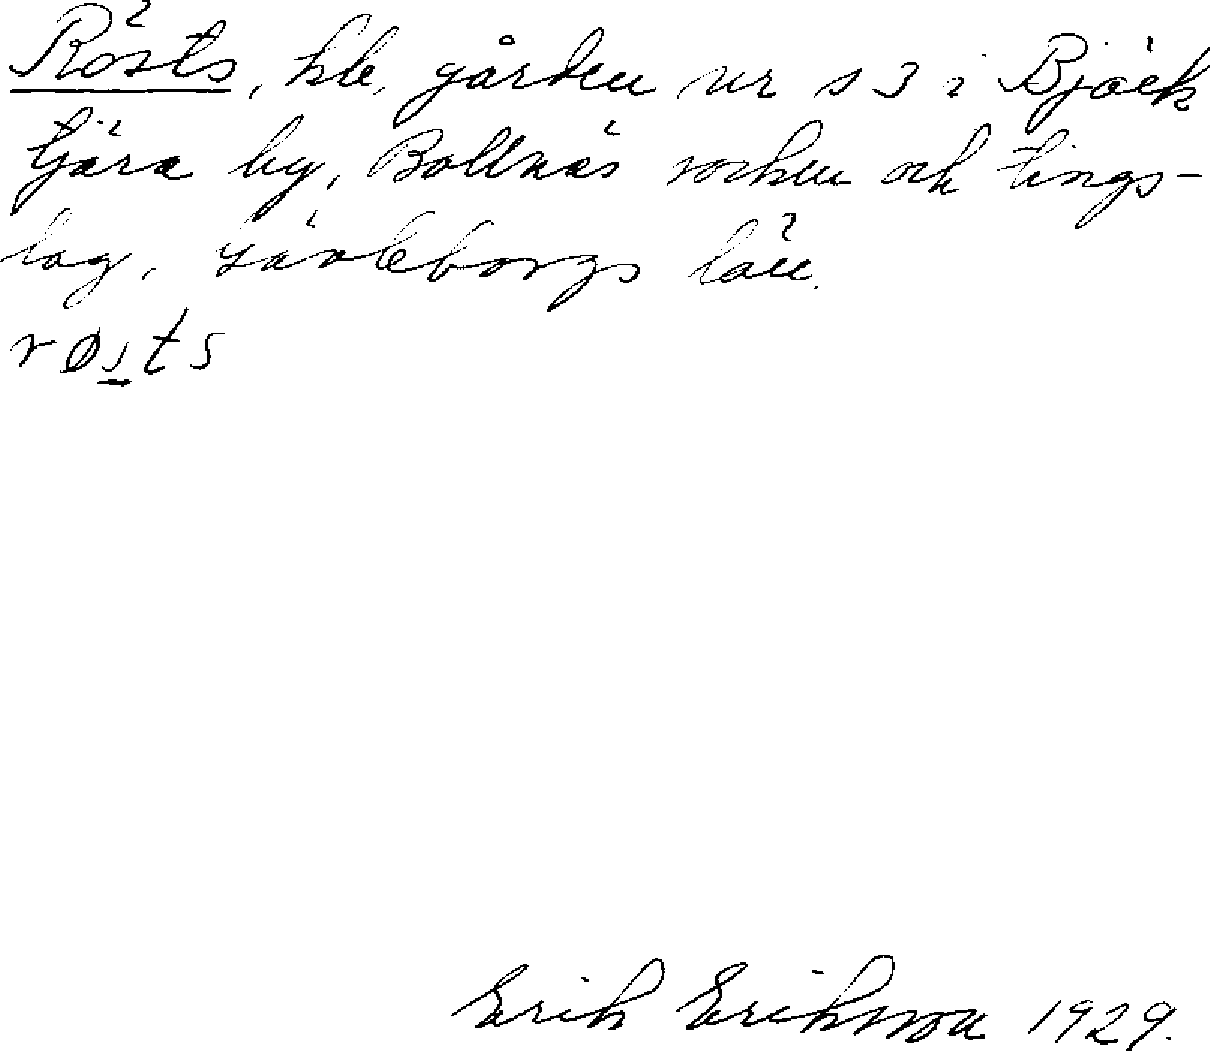 Rösts, hle, gården nr s 3 i Björk
tjära by, Bollnäs socken och tings-
lag, Gävleborgs län.
røsts
Erik Eriksson 1929.